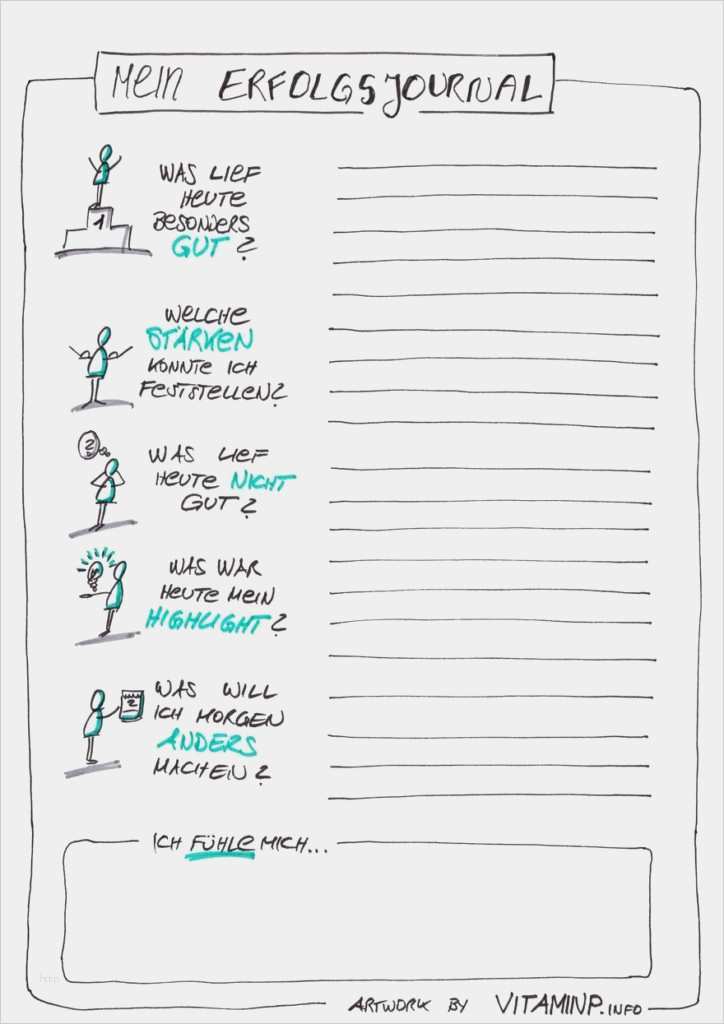 Mein ERFOLGSJOURNAL
WAS LIEF
HEUTE
BESONDERS
GUT?
1
WELCHE
STÄRKEN
KONNTE ICH
FESTSTELLEN?
?
WAS LIEF
HEUTE NICHT
GUT?
WAS WAR
HEUTE MEIN
HIGHLIGHT?
WAS WILL
ICH MORGEN
ANDERS
MACHEN?
?
ICH FÜHLE MICH...
ARTWORK BY VITAMINP.INFO